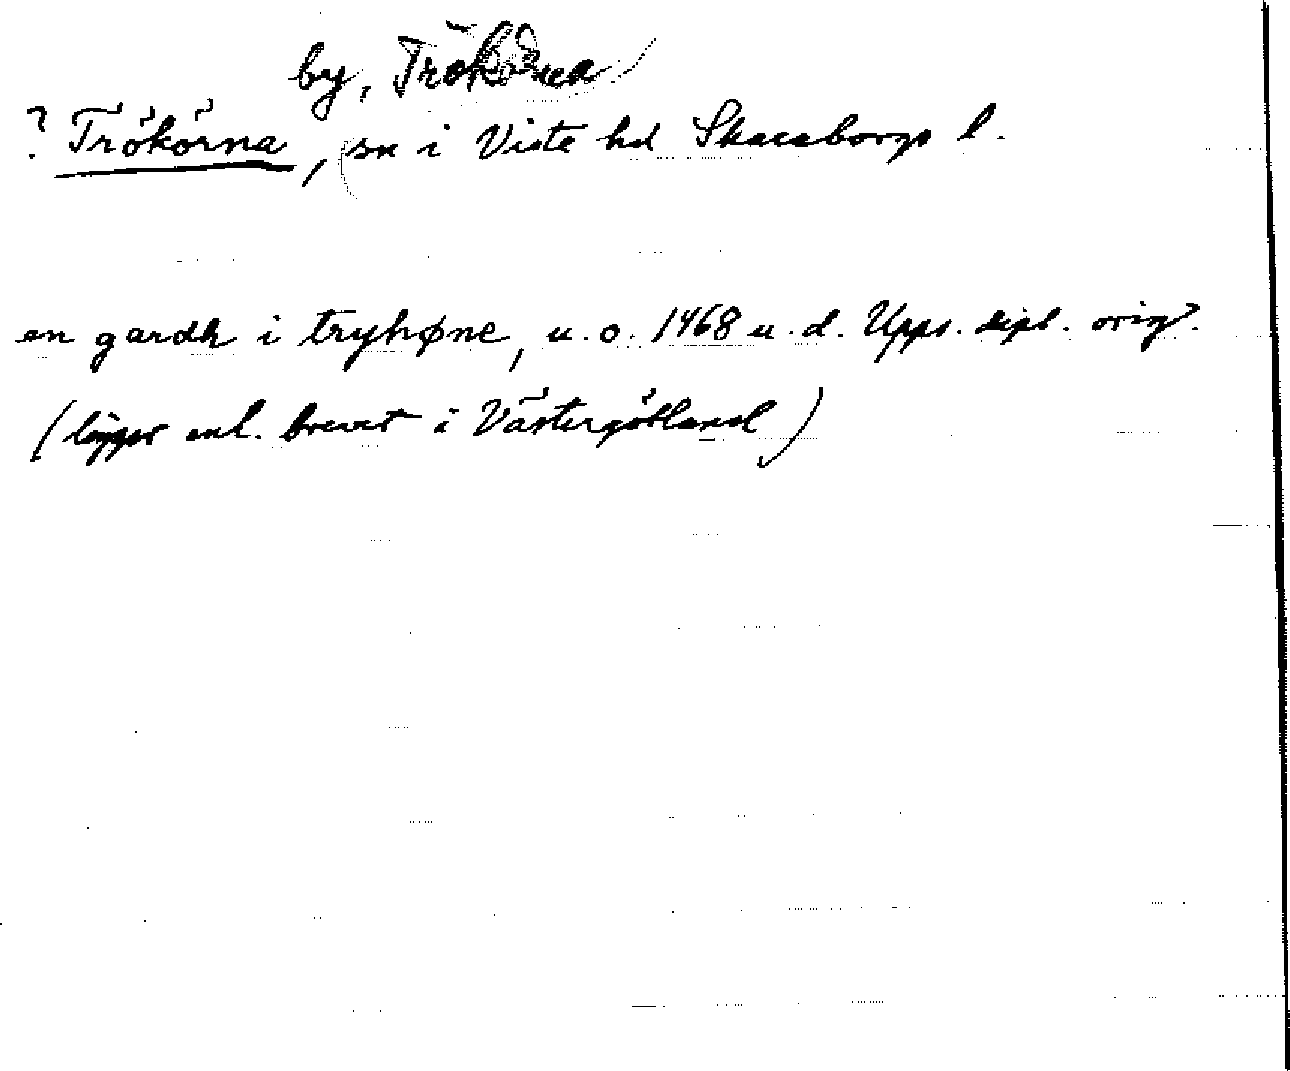 by, Trökörna
? Trökörna, (sn i Viste hd Skaraborgs l.
en gardh i tryhøne, u.o. 1468 u.d. Upps. dipl. orig?.
(ligger enl. brevet i Västergötland)